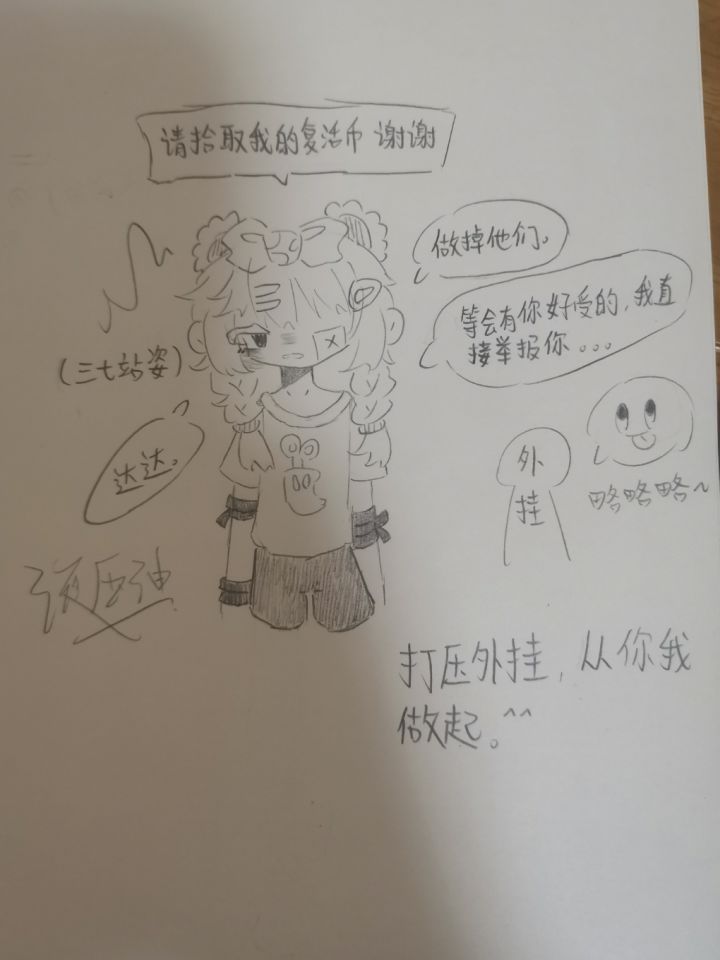 请拾取我的复活币 谢谢
做掉他们。
等会有你好受的,我直
接举报你...
(三七站姿)
达达。
外
挂
略略略~
打压外挂,从你我
做起。^^